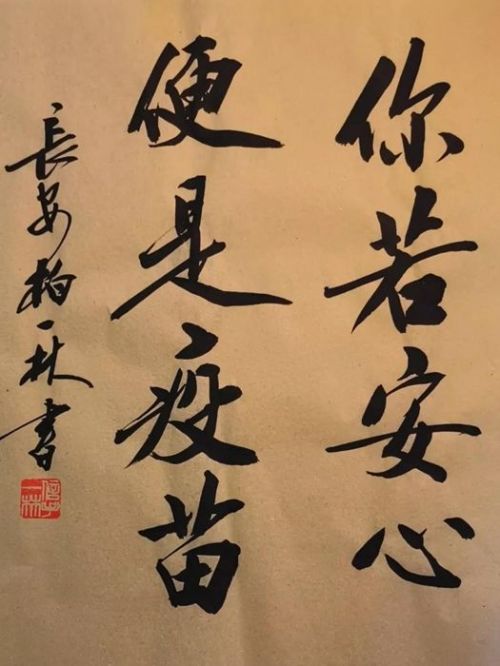 你若安心
便是疫苗
長安柏一林書